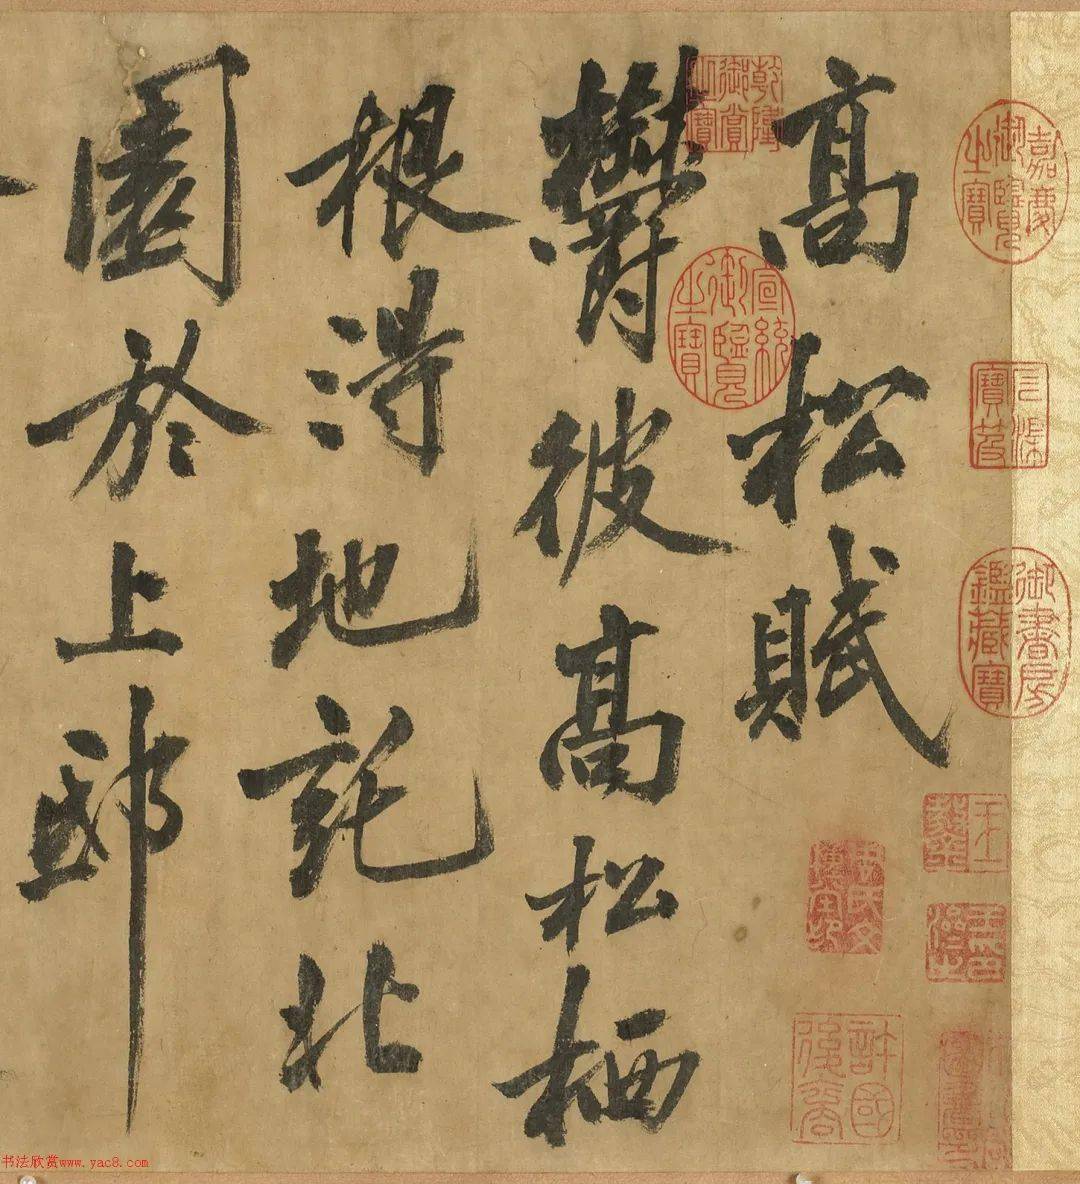 高松賦
欝彼高松栖
根得地託北
園於上邸
乾隆御賞之寶
宣統御覽之寶
嘉慶御覽之寶
三希堂
御書房鑑藏寶
許國後裔
书法欣赏www.yac8.com